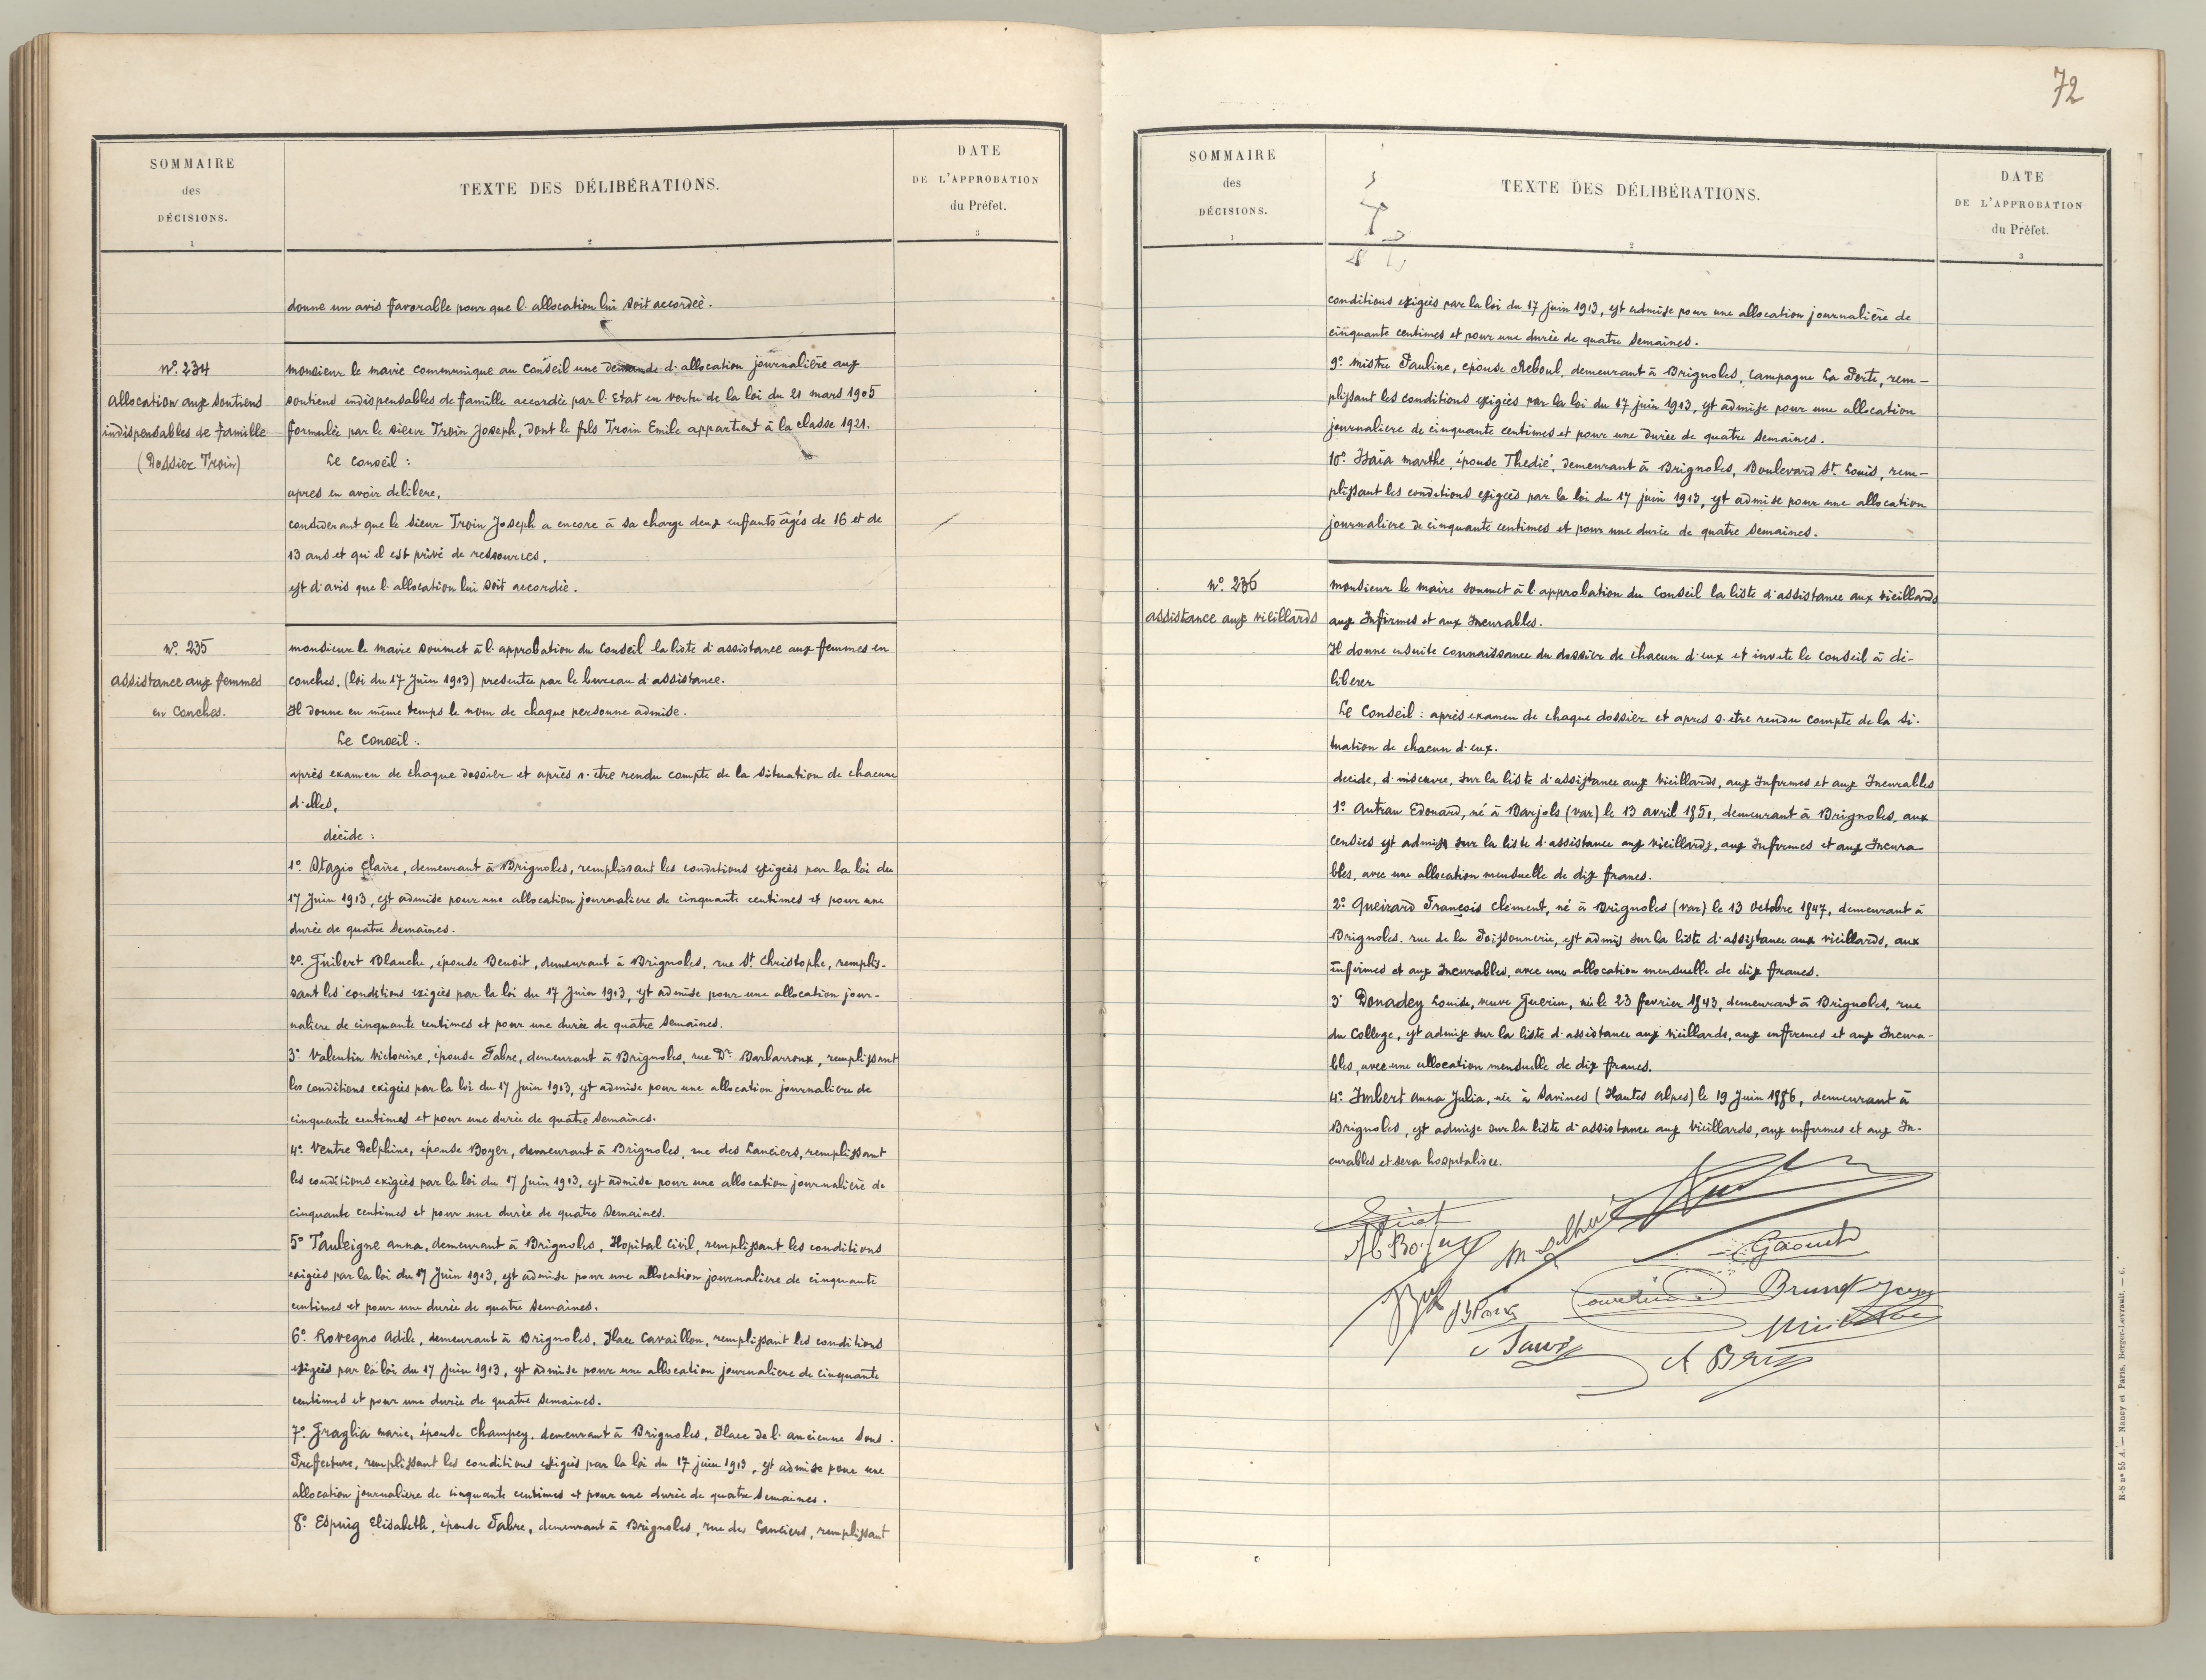 SOMMAIRE
des
DÉCISIONS.
1
TEXTE DES DÉLIBÉRATIONS.
2
DATE
DE L'APPROBATION
du Préfet.
3
donne un avis favorable pour que l'allocation lui soit accordée.
N° 234
Allocation aux soutiens
indispensables de famille
(Dossier Troin)
Monsieur le maire communique au Conseil une demande d'allocation journalière aux
soutiens indispensables de famille accordée par l'Etat en vertu de la loi du 21 mars 1905
formulée par le sieur Troin Joseph, dont le fils Troin Emile appartient à la classe 1921.
Le Conseil :
après en avoir délibéré,
considérant que le sieur Troin Joseph a encore à sa charge deux enfants âgés de 16 et de
13 ans et qu'il est privé de ressources,
est d'avis que l'allocation lui soit accordée.
N° 235
Assistance aux femmes
en Couches.
Monsieur le maire soumet à l'approbation du Conseil la liste d'assistance aux femmes en
couches. (loi du 17 Juin 1913) presentée par le bureau d'assistance.
Il donne en même temps le nom de chaque personne admise.
Le Conseil :
après examen de chaque dossier et après s'etre rendu compte de la situation de chacune
d'elles,
décide :
1° Stagio Claire, demeurant à Brignoles, remplissant les conditions exigées par la loi du
17 Juin 1913, est admise pour une allocation journaliere de cinquante centimes et pour une
durée de quatre semaines.
2° Guibert Blanche, épouse Benoit, demeurant à Brignoles, rue St Christophe, remplis-
sant les conditions exigées par la loi du 17 Juin 1913, est admise pour une allocation jour-
naliere de cinquante centimes et pour une durée de quatre semaines.
3° Valentin Victorine, épouse Fabre, demeurant à Brignoles, rue Dr Barbarroux, remplissant
les conditions exigées par la loi du 17 Juin 1913, est admise pour une allocation journaliere de
cinquante centimes et pour une durée de quatre semaines.
4° Ventre Delphine, épouse Boyer, demeurant à Brignoles, rue des Lanciers, remplissant
les conditions exigées par la loi du 17 Juin 1913, est admise pour une allocation journalière de
cinquante centimes et pour une durée de quatre semaines.
5° Tauleigne Anna, demeurant à Brignoles, Hopital Civil, remplissant les conditions
exigées par la loi du 17 Juin 1913, est admise pour une allocation journaliere de cinquante
centimes et pour une durée de quatre semaines.
6° Rovegno Adile, demeurant à Brignoles, Place Cavaillon, remplissant les conditions
exigées par la loi du 17 Juin 1913, est admise pour une allocation journaliere de cinquante
centimes et pour une durée de quatre semaines.
7° Graglia Marie, épouse Champey, demeurant à Brignoles, Place de l'ancienne Sous-
Prefecture, remplissant les conditions exigées par la loi du 17 juin 1913, est admise pour une
allocation journaliere de cinquante centimes et pour une durée de quatre semaines.
8° Espuig Elisabeth, épouse Fabre, demeurant à Brignoles, rue des Lanciers, remplissant
72
SOMMAIRE
des
DÉCISIONS.
1
TEXTE DES DÉLIBÉRATIONS.
2
DATE
DE L'APPROBATION
du Préfet.
3
conditions exigées par la loi du 17 Juin 1913, est admise pour une allocation journalière de
cinquante centimes et pour une durée de quatre semaines.
9° Mistre Pauline, épouse Reboul, demeurant à Brignoles, Campagne La Perte, rem-
plissant les conditions exigées par la loi du 17 juin 1913, est admise pour une allocation
journaliere de cinquante centimes et pour une durée de quatre semaines.
10° Isaïa Marthe, épouse Thedié, demeurant à Brignoles, Boulevard St Louis, rem-
plissant les conditions exigées par la loi du 17 juin 1913, est admise pour une allocation
journaliere de cinquante centimes et pour une durée de quatre semaines.
N° 236
Assistance aux vieillards
Monsieur le maire soumet à l'approbation du Conseil la liste d'assistance aux vieillards
aux Infirmes et aux Incurables.
Il donne ensuite connaissance du dossier de chacun d'eux et invite le conseil à dé-
liberer
Le Conseil : après examen de chaque dossier et apres s'etre rendu compte de la si-
tuation de chacun d'eux.
decide, d'inscrire, sur la liste d'assistance aux vieillards, aux Infirmes et aux Incurables
1° Autran Edouard, né à Barjols (Var) le 13 avril 1851, demeurant à Brignoles, aux
Censies est admis sur la liste d'assistance aux vieillards, aux Infirmes et aux Incura
bles, avec une allocation mensuelle de dix francs.
2° Queirard François Clément, né à Brignoles (Var) le 13 octobre 1847, demeurant à
Brignoles, rue de la Poissonnerie, est admis sur la liste d'assistance aux vieillards, aux
infirmes et aux Incurables, avec une allocation mensuelle de dix francs.
3° Donadey Louise, veuve Guerin, née le 23 fevrier 1843, demeurant à Brignoles, rue
du College, est admise sur la liste d'assistance aux vieillards, aux infirmes et aux Incura-
bles, avec une allocation mensuelle de dix francs.
4° Imbert Anna Julia, née à Savines (Hautes Alpes) le 19 Juin 1886, demeurant à
Brignoles, est admise sur la liste d'assistance aux vieillards, aux infirmes et aux In-
curables et sera hospitalisée.
Brunet
R-S n° 55 A. — Nancy et Paris, Berger-Levrault. — 6.